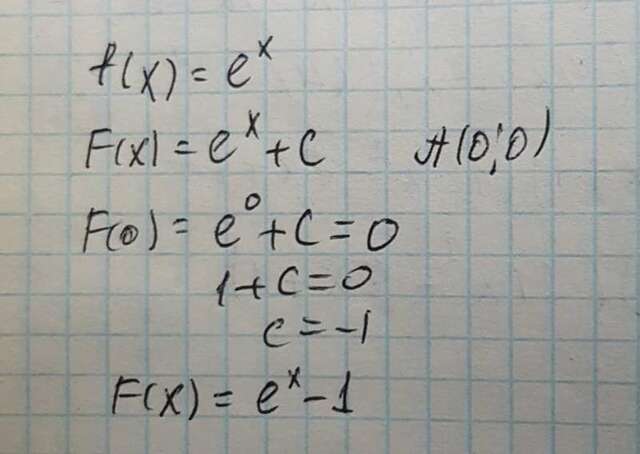 f(x) = e^x
F(x) = e^x + C A(0;0)
F(0) = e^0 + C = 0
1 + C = 0
C = -1
F(x) = e^x - 1